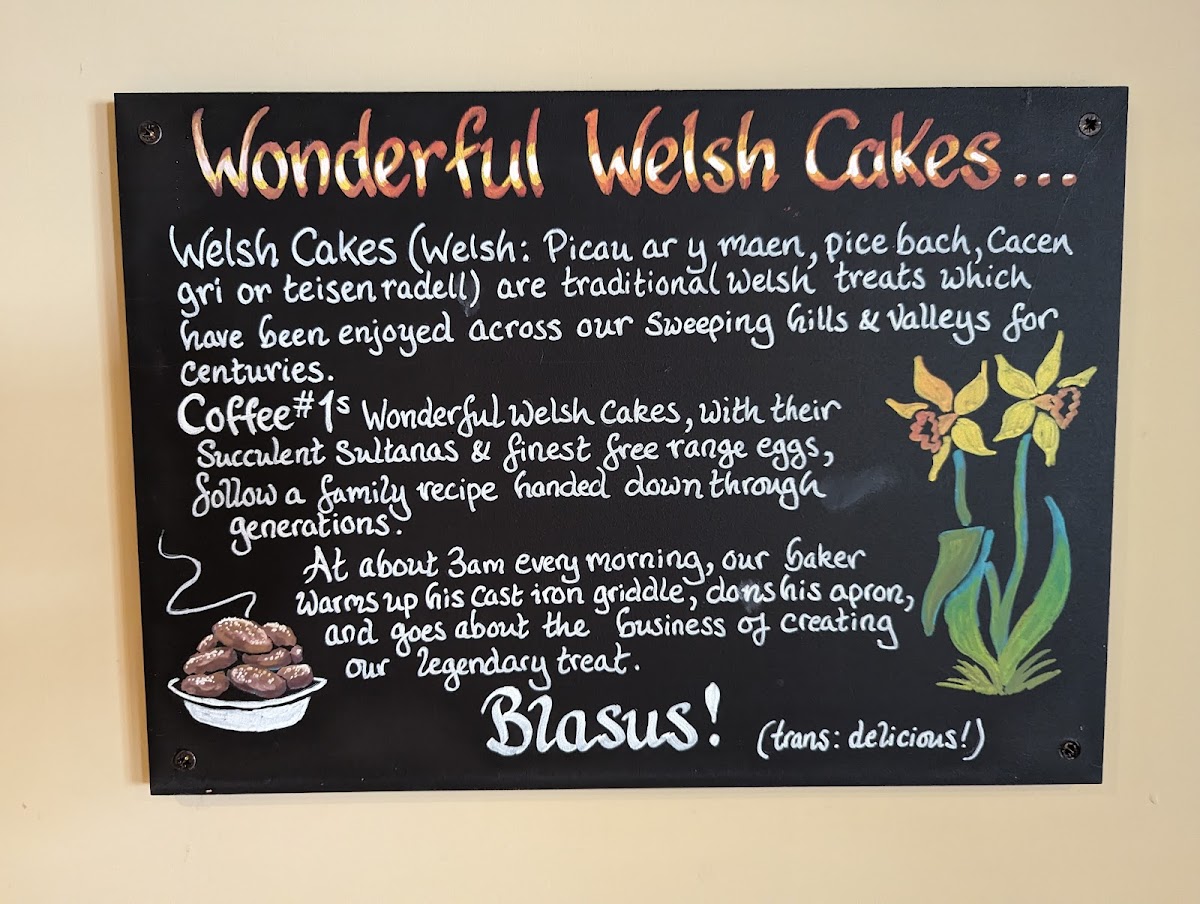 Wonderful Welsh Cakes...
Welsh Cakes (Welsh: Picau ar y maen, pice bach, Cacen
gri or teisen radell) are traditional Welsh treats which
have been enjoyed across our sweeping hills & valleys for
centuries.
Coffee#1s Wonderful Welsh Cakes, with their
Succulent Sultanas & finest free range eggs,
follow a family recipe handed down through
generations.
At about 3am every morning, our baker
warms up his cast iron griddle, dons his apron,
and goes about the business of creating
our legendary treat.
Blasus! (trans: delicious!)